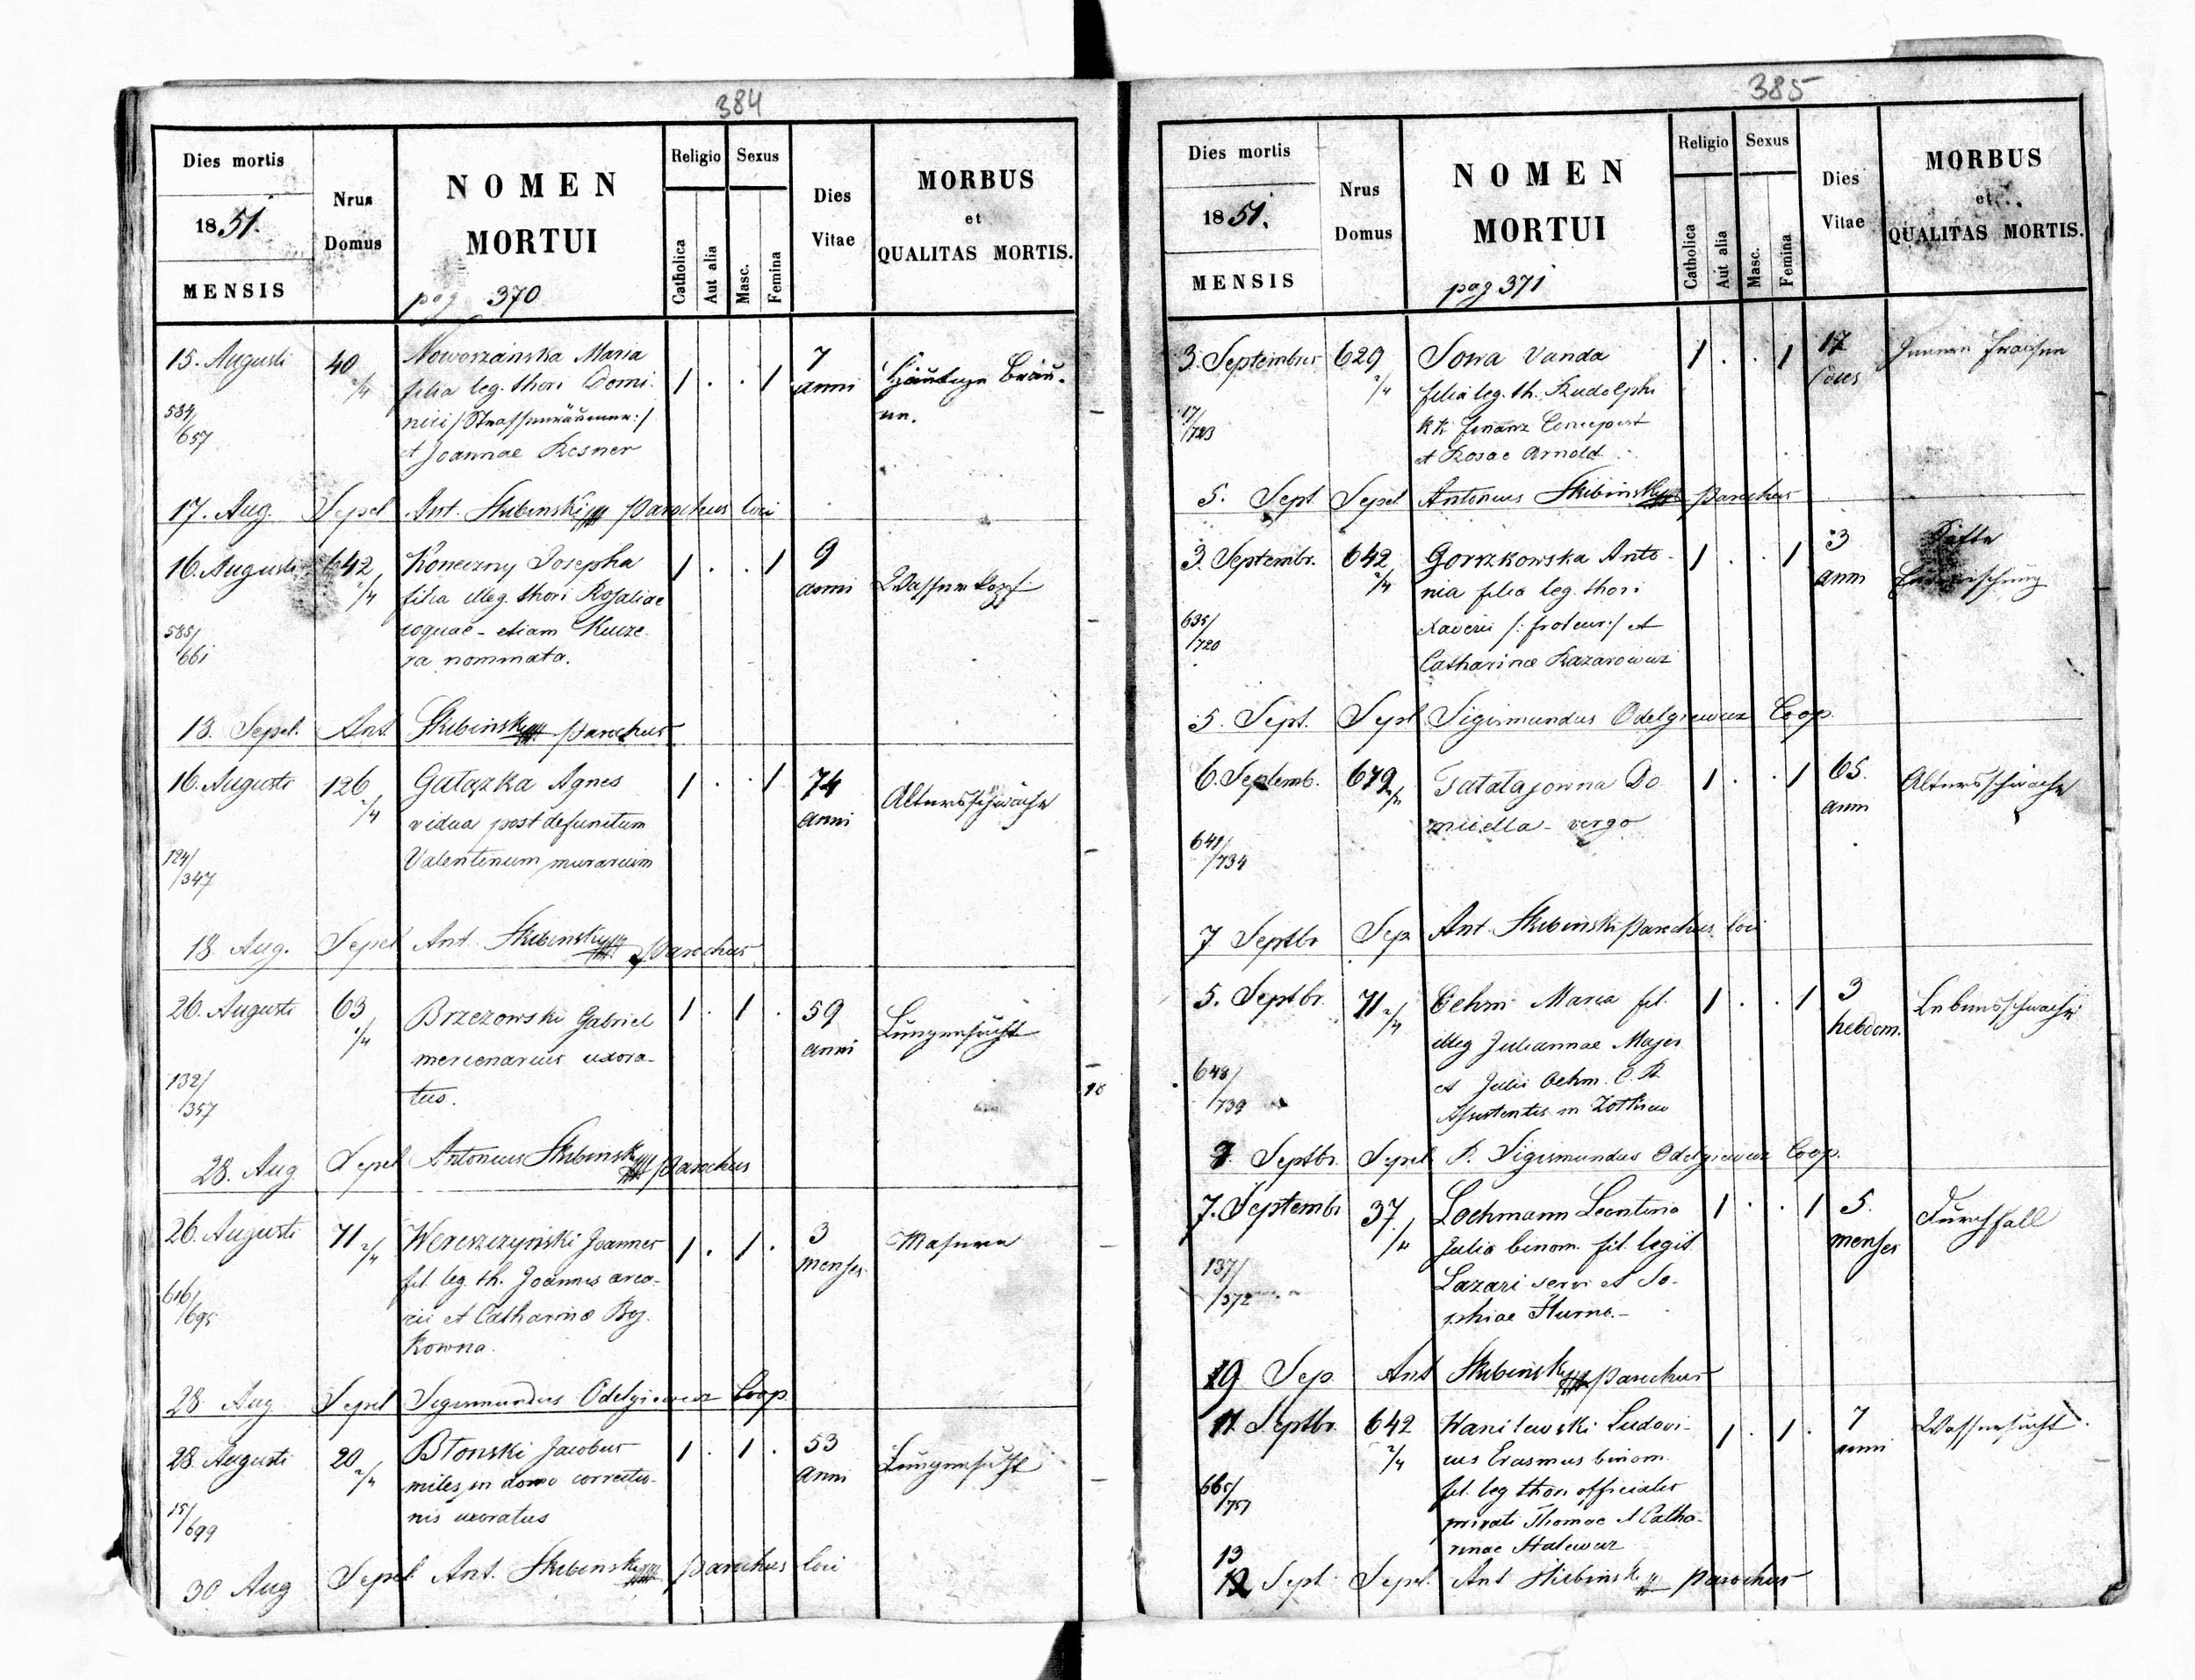 384
Dies mortis
1851.
MENSIS
Nrus
Domus
NOMEN
MORTUI
pag 370
Religio
Catholica
Aut alia
Sexus
Masc.
Femina
Dies
Vitae
MORBUS
et
QUALITAS MORTIS.
15. Augusti 40 2/4 Noworzańska Maria 1 . . 1 7 anni Häutige Bräu-
filia leg. thori Domi- ne.
nici /Strassenräumer:/
584/657 et Joannae Rosner
17. Aug. Sepel Ant. Skibinski parochus loci
16. Augusti 642 2/4 Koneczny Josepha 1 . . 1 9 anni Wasserkopf
filia illeg. thori Rosaliae
585/661 coquae - etiam Kucze-
ra nominata.
18. Sepel. Ant. Skibinski parochus
16. Augusti 126 /4 Gałązka Agnes 1 . . 1 74 anni Altersschwäche
vidua post defunctum
124/347 Valentinum murarium
18. Aug. Sepel Ant. Skibinski parochus
26. Augusti 63 /4 Brzezowski Gabriel 1 . 1 . 59 anni Lungensucht
mercenarius uxora-
132/357 tus.
28. Aug Sepel Antonius Skibinski parochus
26. Augusti 71 2/4 Wereszczyński Joannes 1 . 1 . 3 menses Masern
fil. leg. th. Joannis arca-
616/695 rii et Catharina Boj-
kowna.
28 Aug Sepel Sigismundus Odelgiewicz Coop.
28. Augusti 20 2/4 Błonski Jacobus 1 . 1 . 53 anni Lungensucht
miles in domo correctio-
15/699 nis uxoratus
30 Aug Sepel Ant. Skibinski parochus loci
385
Dies mortis
1851.
MENSIS
Nrus
Domus
NOMEN
MORTUI
pag 371
Religio
Catholica
Aut alia
Sexus
Masc.
Femina
Dies
Vitae
MORBUS
et
QUALITAS MORTIS.
3. Septembris 629 2/4 Sowa Vanda 1 . . 1 17 dies Innere Fraisen
filia leg. th. Rudolphi
17/723 KK finanz Concepist
et Rosae Arnold
5. Sept. Sepel Antonius Skibinski parochus
3. Septembr. 642 2/4 Gorzkowska Anto- 1 . . 1 3 anni Säfte
nia filia leg. thori
635/720 Xaverii /: froteur:/ et
Catharina Kazarowicz
5. Sept. Sepl Sigismundus Odelgiewicz Coop.
6. Septemb. 679 Tatałajowna Do 1 . . 1 65. anni Altersschwäche
micella - virgo
641/734
7 Septbr Sep Ant. Skibinski parochus loci
5. Septbr. 71 2/4 Oehm Maria fil. 1 . . 1 3 hebdom. Lebensschwäche
illeg Juliannae Majer
648/739 et Julii Oehm. C. R.
Assistentis in Zołkiew
7. Septbr. Sepel P. Sigismundus Odelgiewicz Coop.
7. Septembr 37 /4 Lochmann Leontina 1 . . 1 5. menses Durchfall
Julia binom. fil. legit.
137/372 Lazari servi et So-
phiae Hurna.-
19 Sep Ant Skibinski parochus
11 Septbr. 642 2/4 Wanilewski Ludovi- 1 . 1 . 7 anni Wassersucht.
cus Erasmus binom.
665/757 fil. leg thori officialis
privati Thomae et Catha-
rinae Halewicz
13 Sept. Sepel. Ant Skibinski parochus